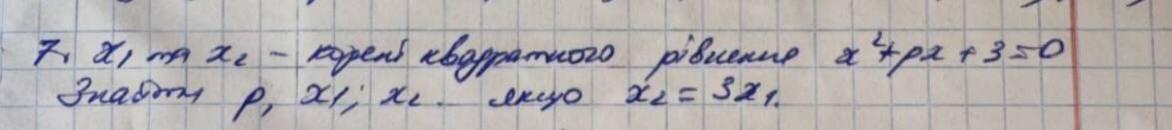 7. x₁ та x₂ – корені квадратного рівнення x²+px+3=0
Знайти p, x₁; x₂. якщо x₂=3x₁.